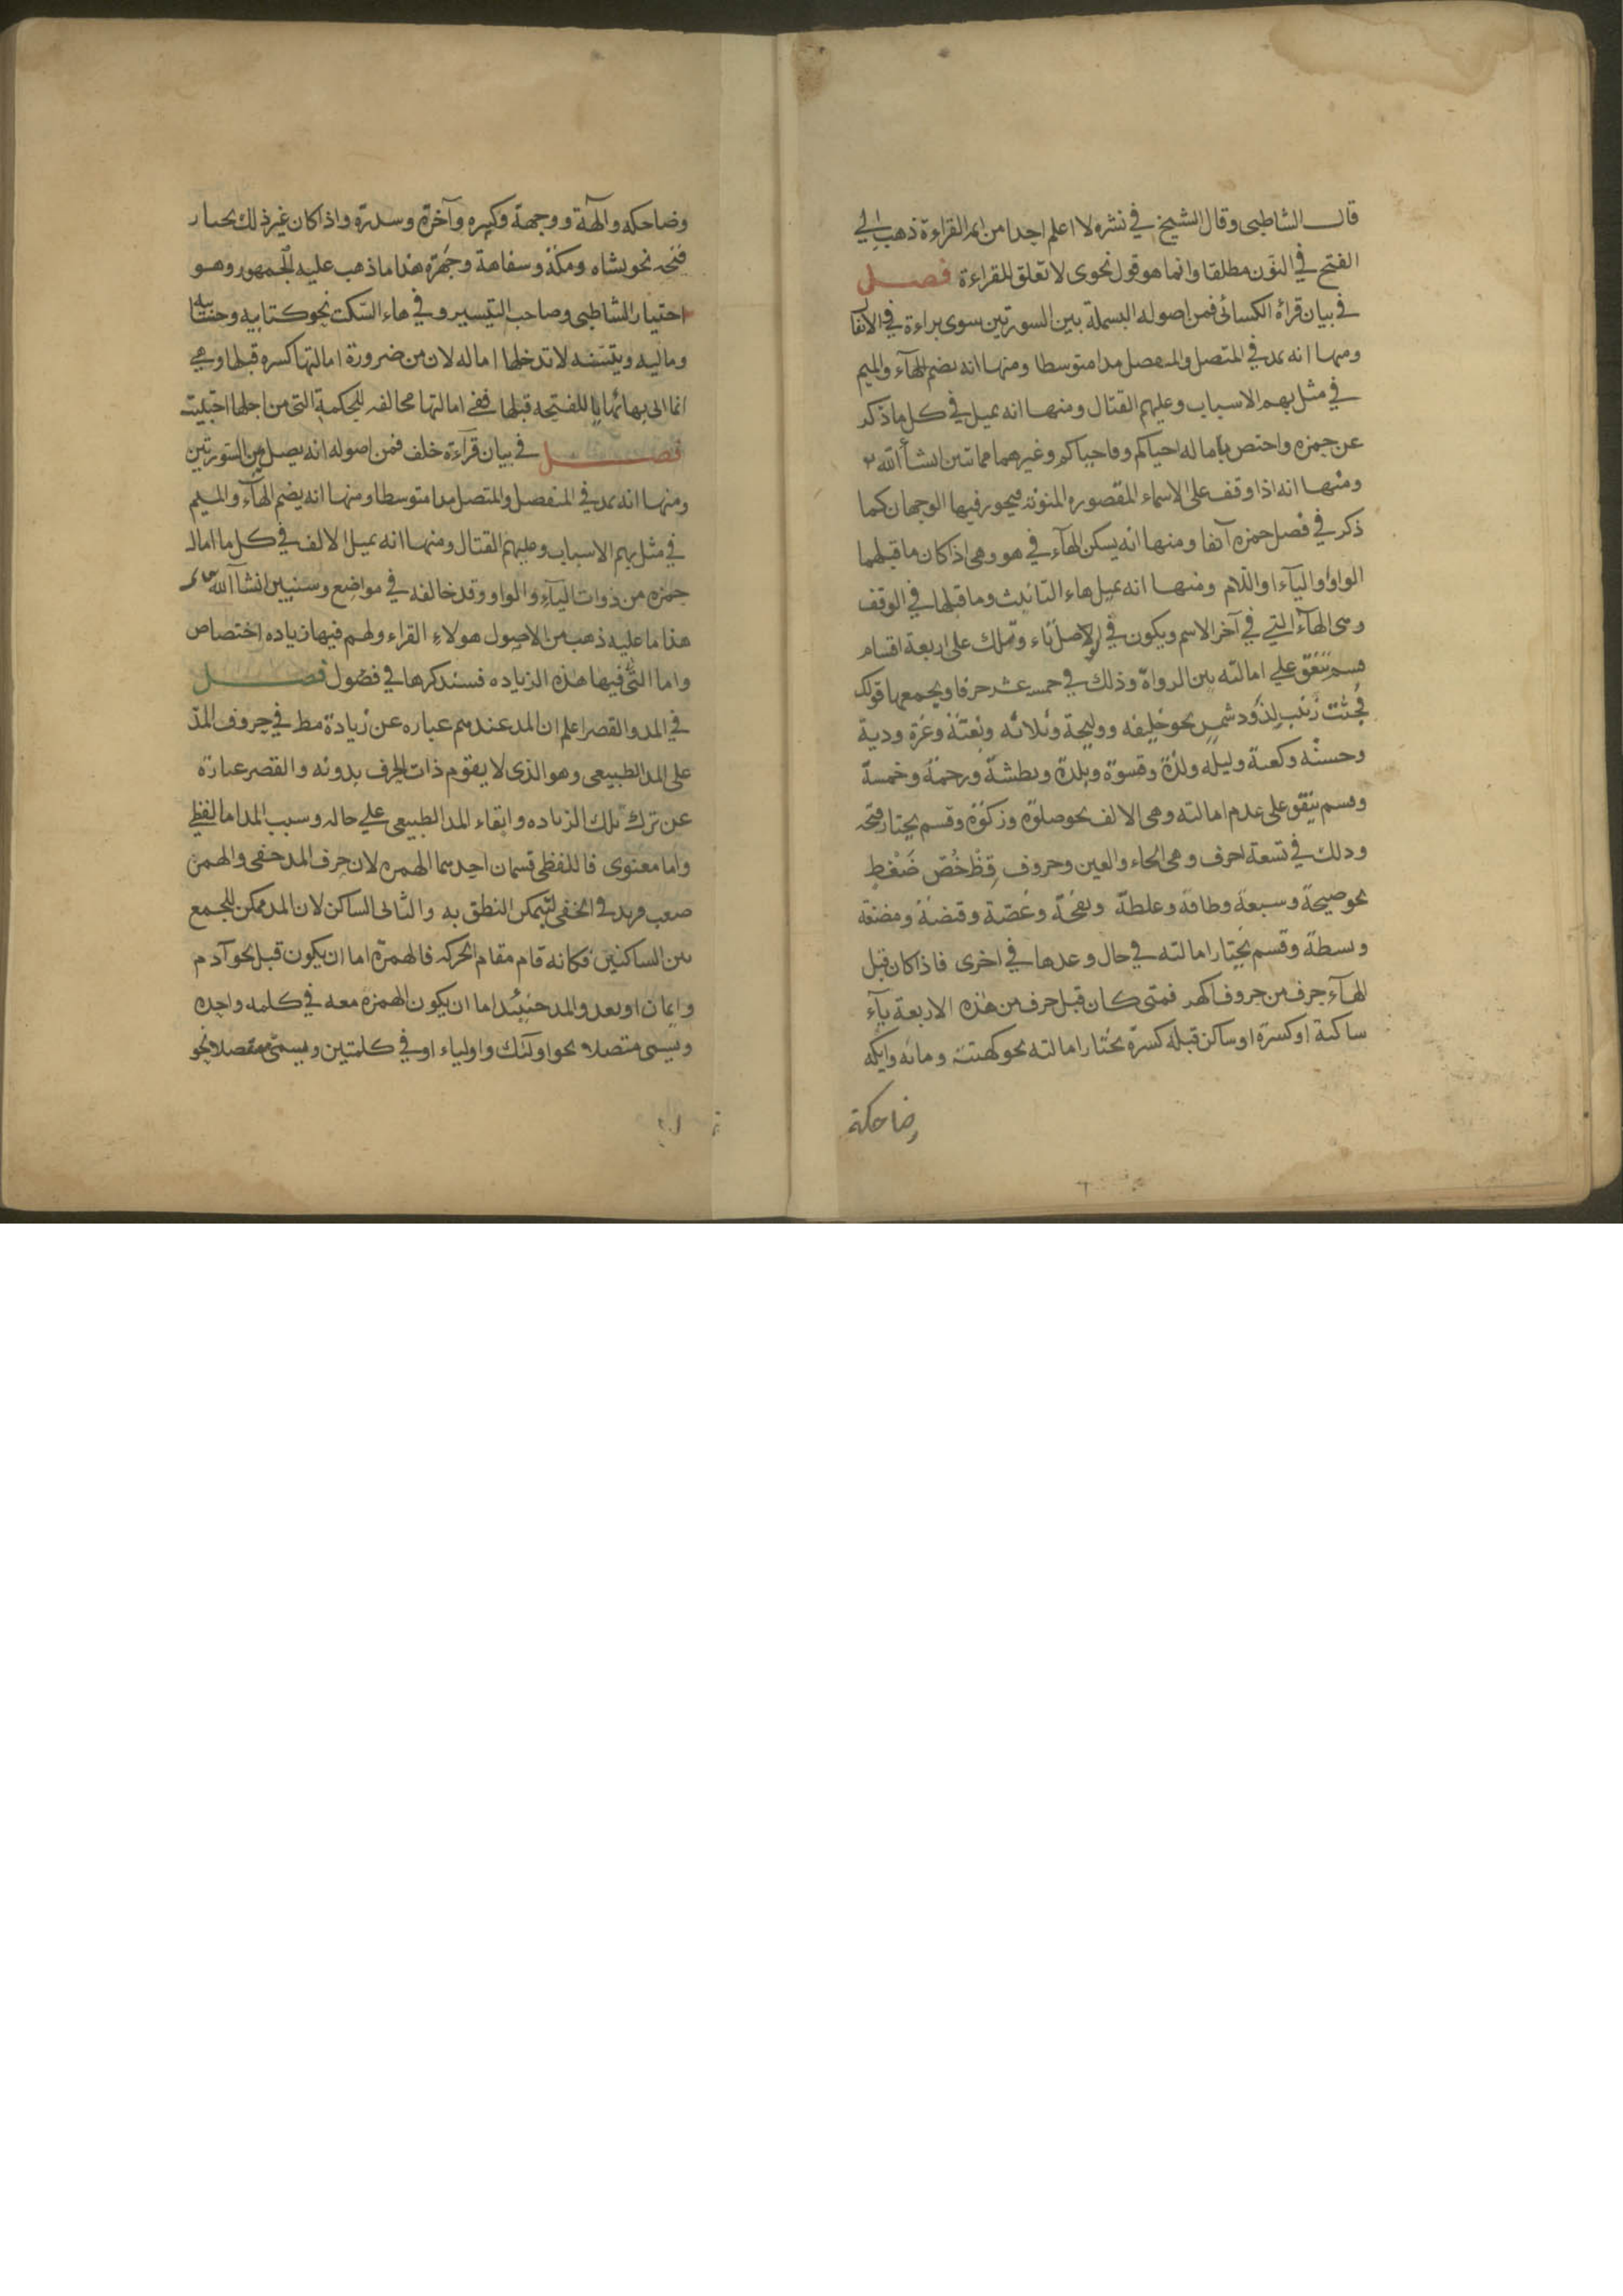 قال الشاطبى وقال الشيخ في نشره لا اعلم احدا من ايمة القراءة ذهب الى
الفتح في النون مطلقا وانما هو قول نحوى لا تعلق للقراءة فصل
في بيان قرأة الكسائى فمن اصوله البسملة بين السورتين سوى براءة في الانفال
ومنها انه يمد في المتصل والمنفصل مدا متوسطا ومنها انه يضم الهآء والميم
في مثل بهم الاسباب وعليهم القتال ومنها انه يميل في كل ما ذكر
عن حمزه واختص باماله احياكم وفاحياكم وغيرهما مما ستبين انشأ الله
ومنها انه اذا وقف على الاسماء المقصوره المنونة فيجوز فيها الوجهان كما
ذكر في فصل حمزه آنفا ومنها انه يسكن الهآء في هو وهى اذا كان ما قبلهما
الواو او اليآء او اللام ومنها انه يميل هاء التانيث وما قبلها في الوقف
وهى الهآء التي في آخر الاسم ويكون في الاصل تاء وتلك على اربعة اقسام
قسم يتفق علي امالته بين الرواة وذلك في خمسه عشر حرفا ويجمعها قولك
فجثت زينب لذود شمس نحو خليفه ووليجة وثلاثه وبغتة وغرة ودية
وحسنة وكعبة وليله ولذة وقسوة وبلدة وبطشة ورحمة وخمسة
وقسم يتفق على عدم امالته وهى الالف نحو صلوة وزكوة وقسم يختار فتحه
وذلك في تسعة احرف وهى الحاء والعين وحروف قظ خص ضغط
نحو صيحة وسبعة وطاقة وغلظة ونفخة وغصة وقبضة ومضغة
وبسطة وقسم يختار امالته في حال وعدها في اخرى فاذا كان قبل
الهآء حرف من حروف اكهر فمتى كان قبل حرف من هذه الاربعة يآء
ساكنة او كسرة او ساكن قبله كسرة يختار امالته نحو كهيئة ومائه وايكه
وضاحكة
وضاحكه وآلهة ووجهة وكبيره وآخرة وسدرة واذا كان غير ذلك يختار
فتحه نحو بشاه ومكة وسفاهة وجهرة هذا ما ذهب عليه الجمهور وهو
اختيار الشاطبى وصاحب التيسير وفي هاء السكت نحو كتابيه وحسابيه
وماليه ويتسنه لا تدخلها اماله لان من ضرورة امالتها كسره قبلها وهي
انما اتى بها بيانا للفتحه قبلها ففي امالتها مخالفه للحكمة التى من اجلها اجتلبت
فصل في بيان قرآءة خلف فمن اصوله انه يصل بين السورتين
ومنها انه يمد في المنفصل والمتصل مدا متوسطا ومنها انه يضم الهآء والميم
في مثل بهم الاسباب وعليهم القتال ومنها انه يميل الالف في كل ما امال
حمزه من ذوات اليآء والواو وقد خالفه في مواضع وسنبين انشآ الله
هذا ما عليه ذهب من الاصول هولاء القراء ولهم فيها زياده اختصاص
واما التى فيها هذه الزياده فسنذكرها في فصول فصل
في المد والقصر اعلم ان المد عندهم عباره عن زيادة مط في حروف المد
على المد الطبيعى وهو الذى لا يقوم ذات الحرف بدونه والقصر عبارة
عن ترك تلك الزياده وابقاء المد الطبيعى علي حاله وسبب المد اما لفظي
واما معنوى فاللفظى قسمان احدهما الهمزه لان حرف المد خفى والهمز
صعب فزيد في الخفى ليتمكن النطق به والثانى الساكن لان المد ممكن للجمع
بين الساكنين فكانه قام مقام الحركه فالهمزة اما ان يكون قبل نحو آدم
وايمان او بعد والمد حينئذ اما ان يكون الهمزه معه في كلمه واحده
ويسمى متصلا نحو اولئك واولياء او في كلمتين ويسمى منفصلا نحو